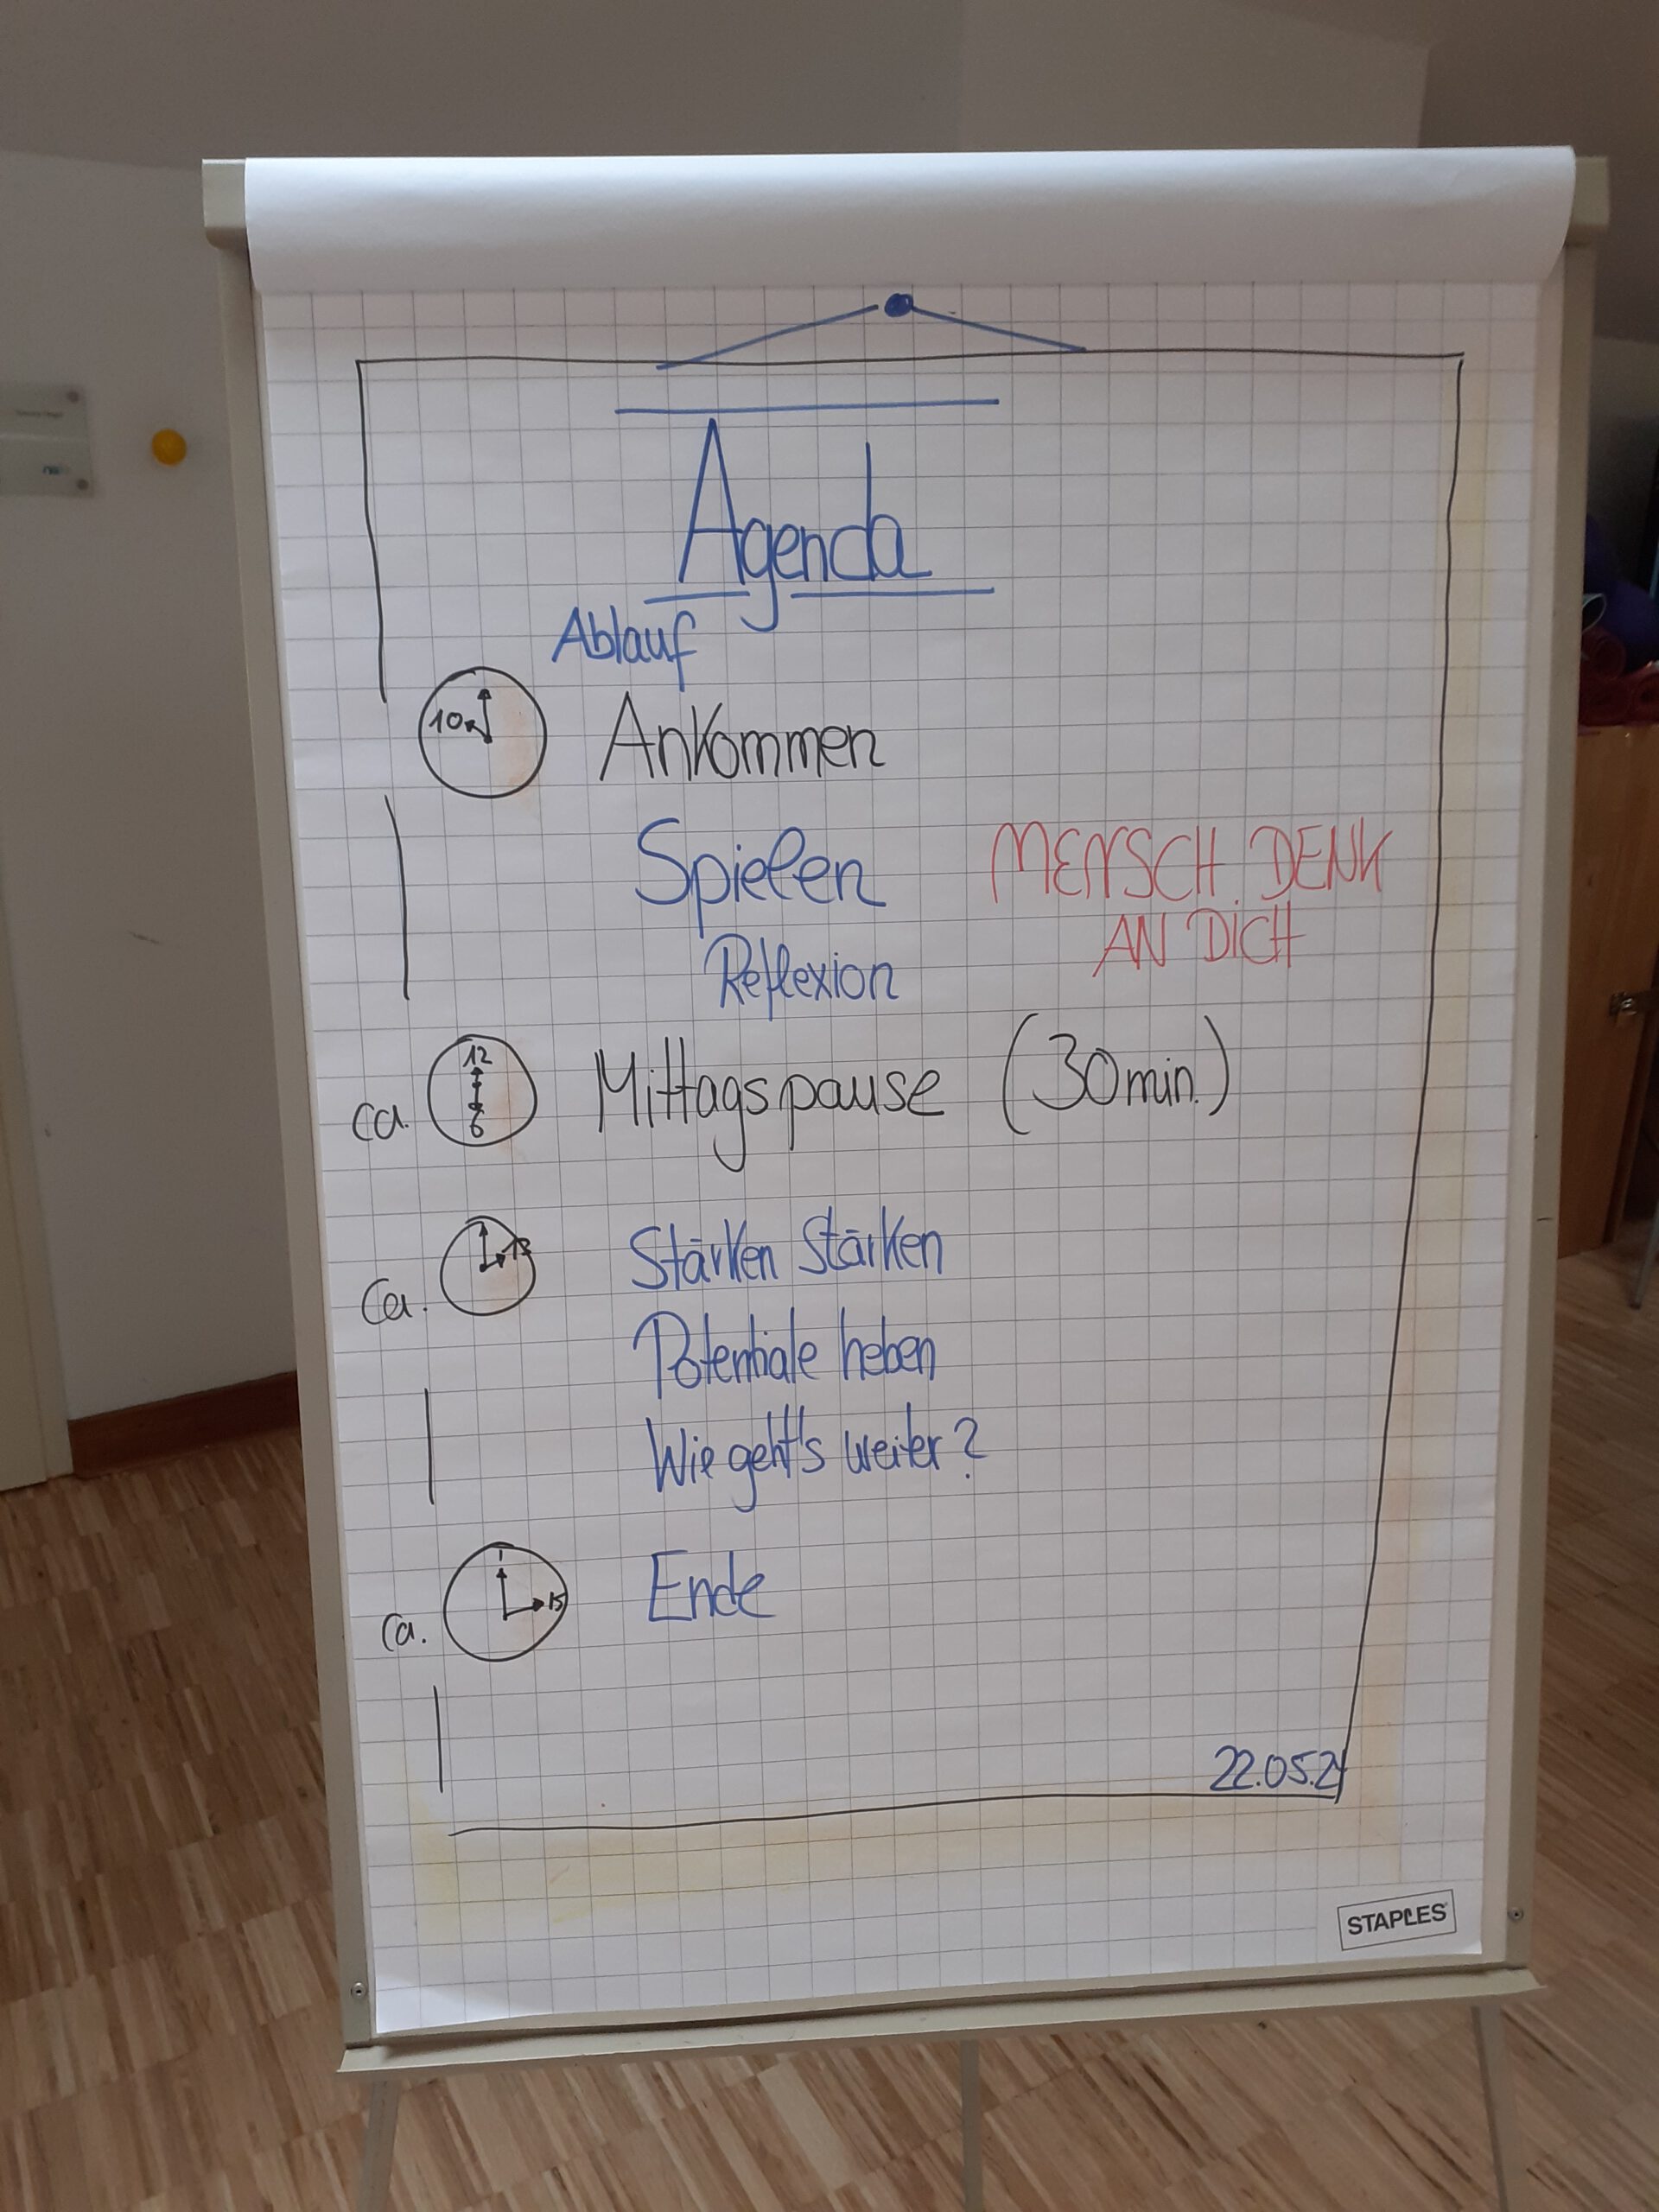 Agenda
Ablauf
10 Ankommen
Spielen MENSCH DENK
AN DICH
Reflexion
ca. 12 6 Mittagspause (30min.)
Ca. 13 Stärken Stärken
Potentiale heben
Wie geht's weiter?
Ca. 15 Ende
22.05.21
STAPLES